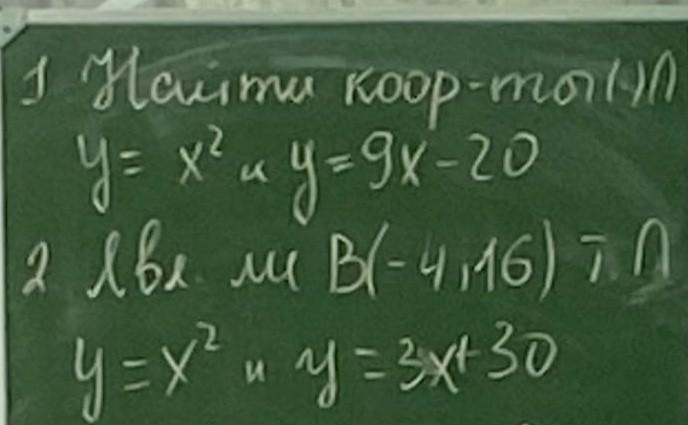 1 Найти коор-ты (·) ∩
y = x² и y = 9x - 20
2 Явл ли B(-4; 16) т ∩
y = x² и y = 3x + 30